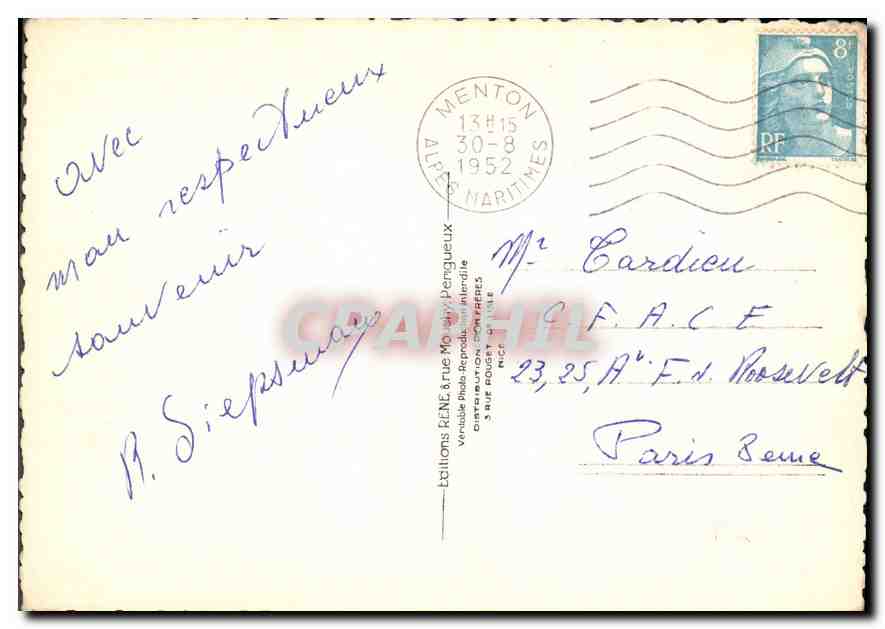 avec
mon respectueux
souvenir
MENTON
13H15
30-8
1952
ALPES MARITIMES
8F
POSTES
RF
Editions RENE, 8, rue Mousny, Périgueux
Véritable Photo - Reproduction interdite
DISTRIBUTION: DON FRÈRES
3 RUE ROUGET DE L'ISLE
NICE
Mr Tardieu
C. F. A. C E
23, 25, Av. F. D. Roosevelt
Paris 8eme
CPAPHIL